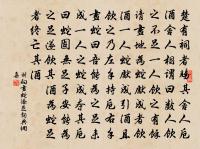 楚有祠者賜其舍人卮
酒舍人相謂曰數人飲
之不足一人飲之有餘
請畫地為蛇先成者飲
酒一人蛇先成引酒且
飲之乃左手持卮右手
畫蛇曰吾能為之足未
成一人之蛇成奪其卮
曰蛇固無足子安能為
之足遂飲其酒為蛇足
者終亡其酒
畫蛇添足